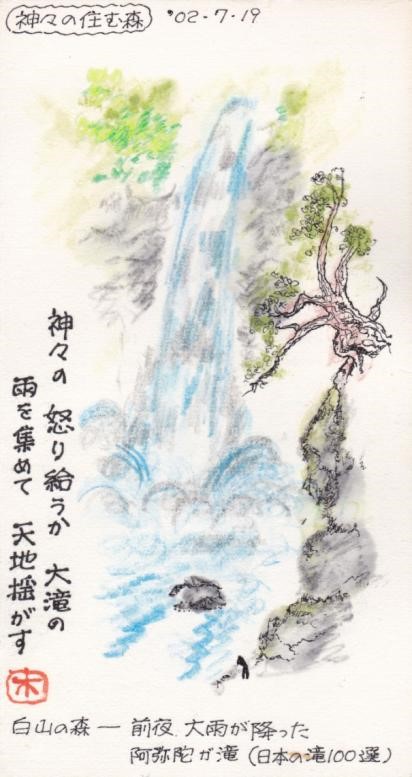 神々の住む森 '02-7-19
神々の 怒り給うか 大滝の
雨を集めて 天地揺がす
白山の森 ― 前夜、大雨が降った
阿弥陀が滝 (日本の滝100選)